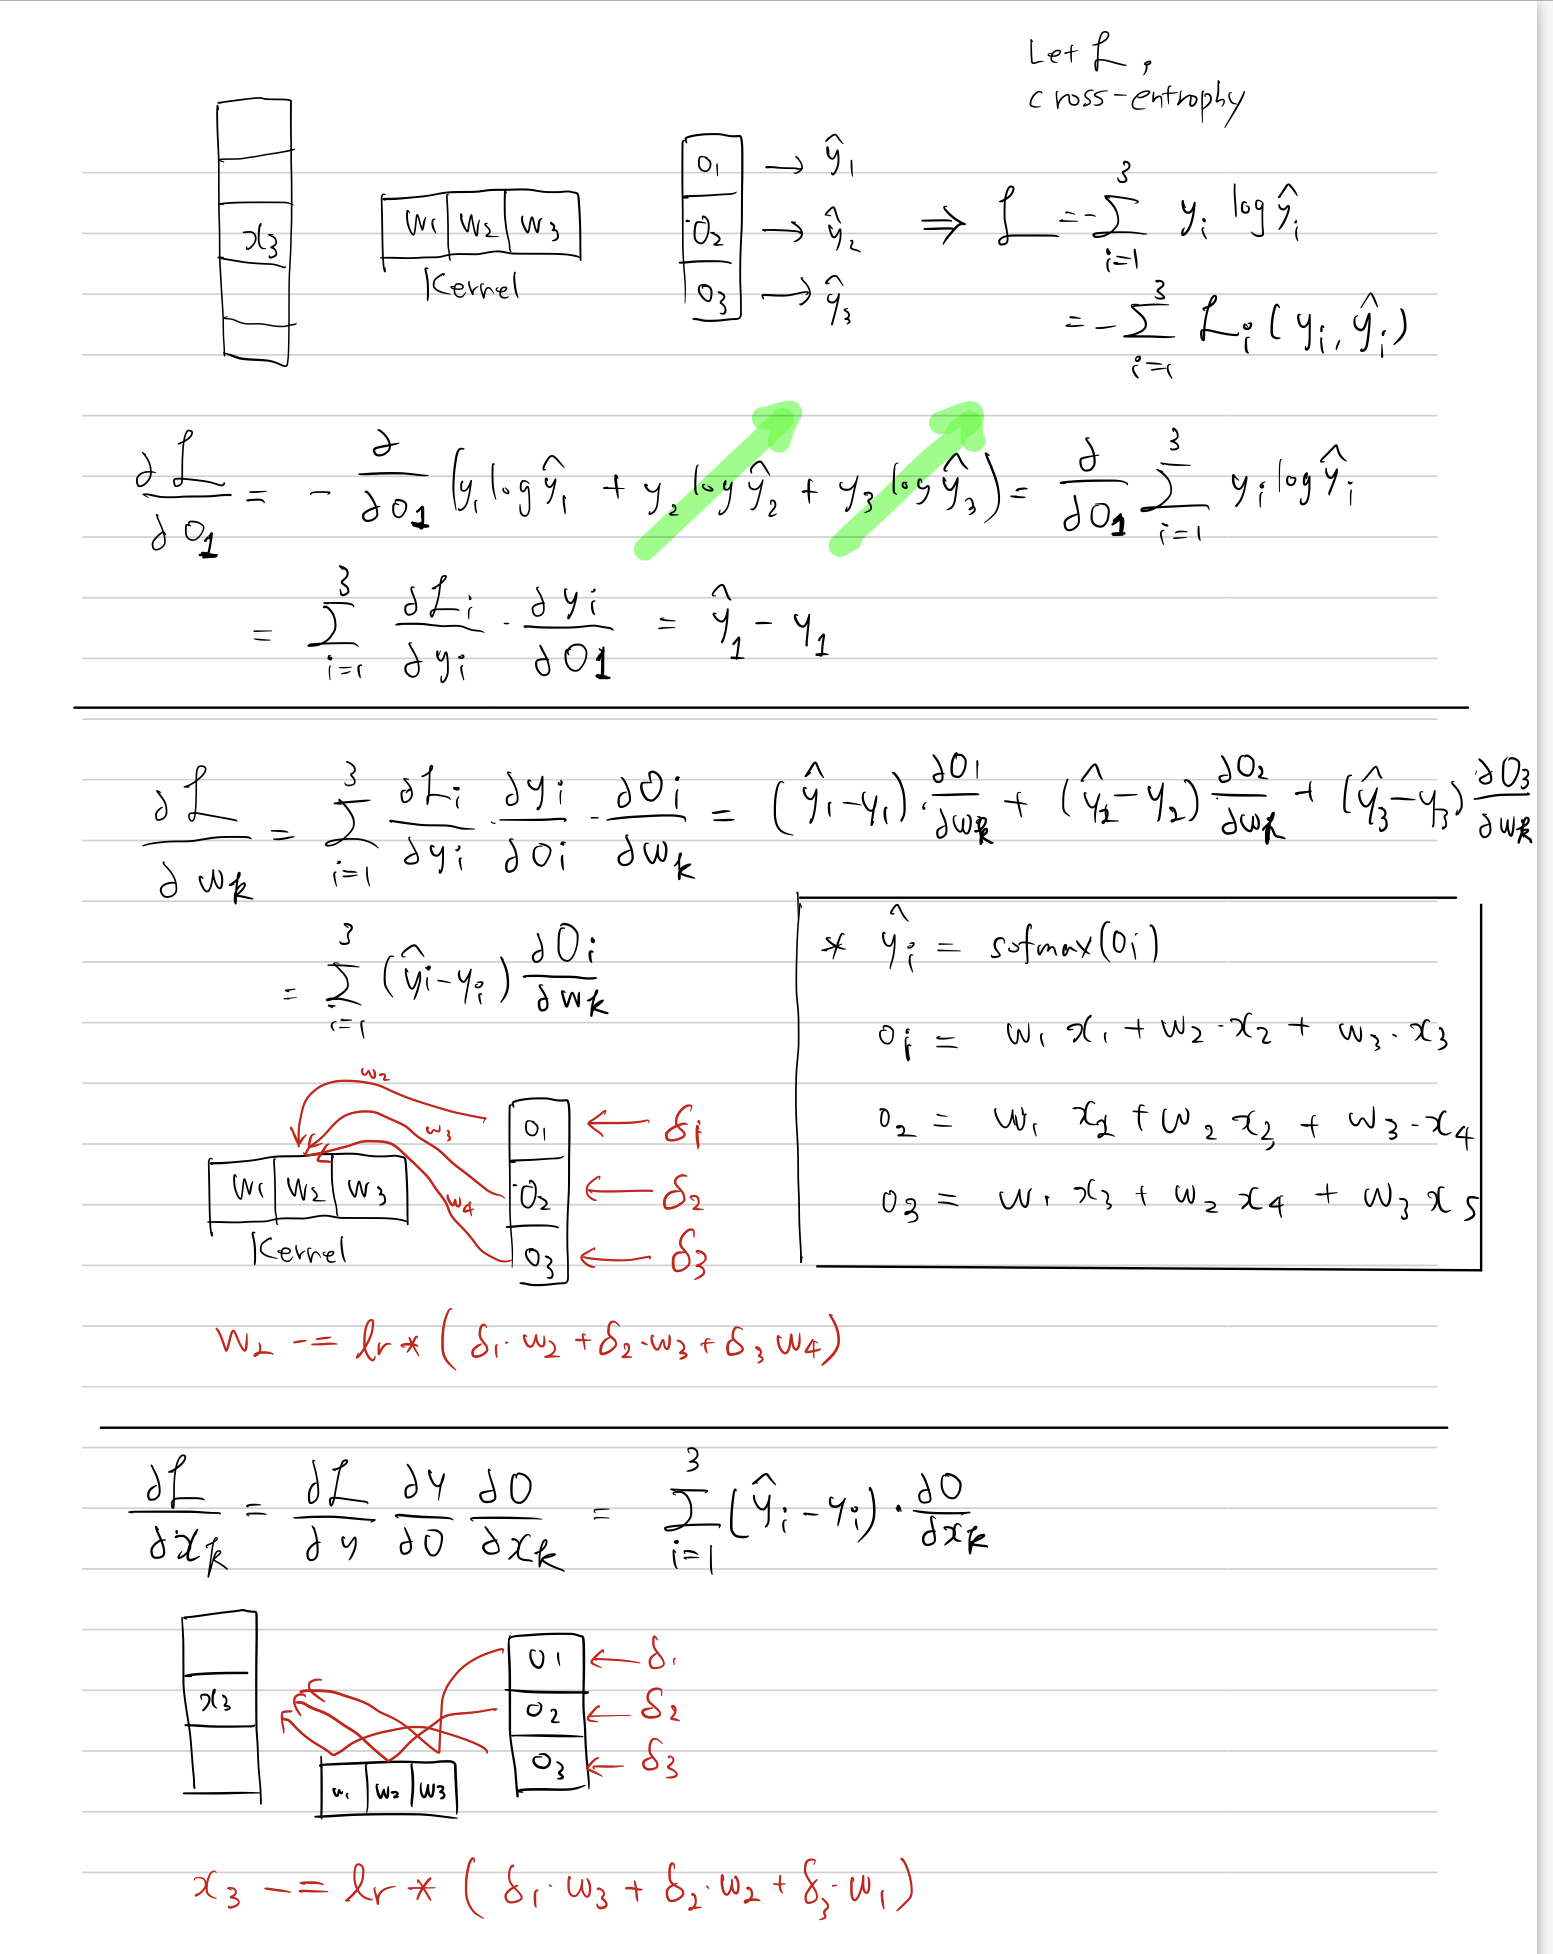 Let ℒ,
cross-entrophy
x₃
w₁ w₂ w₃
Kernel
o₁ → ŷ₁
o₂ → ŷ₂
o₃ → ŷ₃
⇒ ℒ = -∑_{i=1}^{3} yᵢ log ŷᵢ
= -∑_{i=1}^{3} ℒᵢ(yᵢ, ŷᵢ)
∂ℒ/∂o₁ = -∂/∂o₁ (y₁ log ŷ₁ + y₂ log ŷ₂ + y₃ log ŷ₃) = ∂/∂o₁ ∑_{i=1}^{3} yᵢ log ŷᵢ
= ∑_{i=1}^{3} ∂ℒᵢ/∂yᵢ · ∂yᵢ/∂o₁ = ŷ₁ - y₁
∂ℒ/∂wₖ = ∑_{i=1}^{3} ∂ℒᵢ/∂yᵢ · ∂yᵢ/∂oᵢ · ∂oᵢ/∂wₖ = (ŷ₁-y₁)·∂o₁/∂wₖ + (ŷ₂-y₂)∂o₂/∂wₖ + (ŷ₃-y₃)∂o₃/∂wₖ
= ∑_{i=1}^{3} (ŷᵢ-yᵢ) ∂oᵢ/∂wₖ
* ŷᵢ = sofmax(oᵢ)
o₁ = w₁ x₁ + w₂·x₂ + w₃·x₃
o₂ = w₁ x₂ + w₂ x₃ + w₃·x₄
o₃ = w₁ x₃ + w₂ x₄ + w₃ x₅
w₂
w₃
w₄
w₁ w₂ w₃
Kernel
o₁ ← δ₁
o₂ ← δ₂
o₃ ← δ₃
w₂ -= lr * (δ₁·w₂ + δ₂·w₃ + δ₃ w₄)
∂ℒ/∂xₖ = ∂ℒ/∂y ∂y/∂o ∂o/∂xₖ = ∑_{i=1}^{3} (ŷᵢ - yᵢ)·∂o/∂xₖ
x₃
o₁ ← δ₁
o₂ ← δ₂
o₃ ← δ₃
w₁ w₂ w₃
x₃ -= lr * (δ₁·w₃ + δ₂·w₂ + δ₃·w₁)